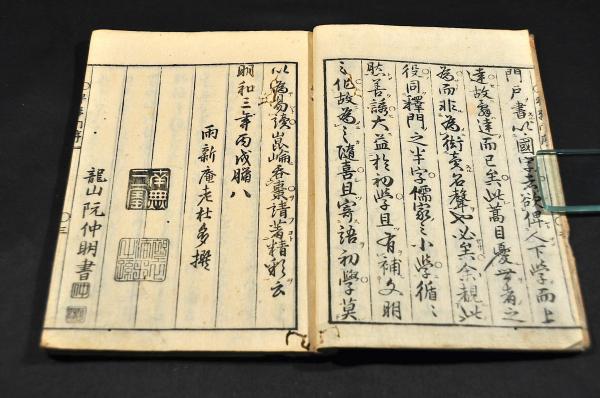 門戸書以國字意欲俾人下學而上
達故辭達而已矣此蒿目憂世者之
為而非為衒賣名聲也必矣余観此
役同釋門之半字儒家之小學循〻
肰善誘大益於初學且有補文明
之化故為之隨喜且寄語初學莫
以為易讀崑崘吞棗請著精彩云
明和三年丙戌臘八
雨新庵老杜多撰
南無
三寶
龍山阮仲明書